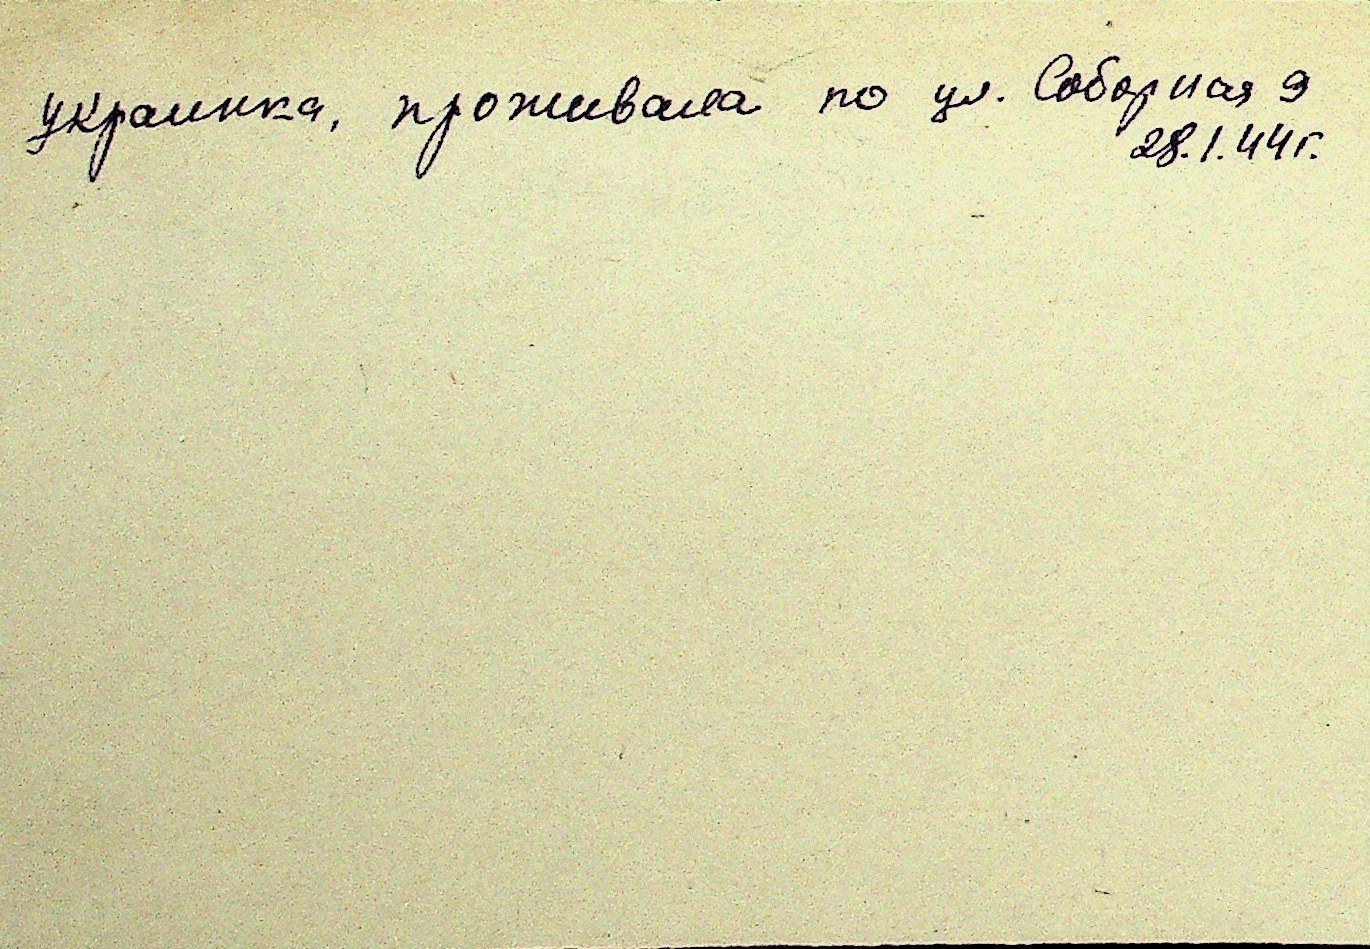 украинка, проживала по ул. Соборная 9
28.1.44г.